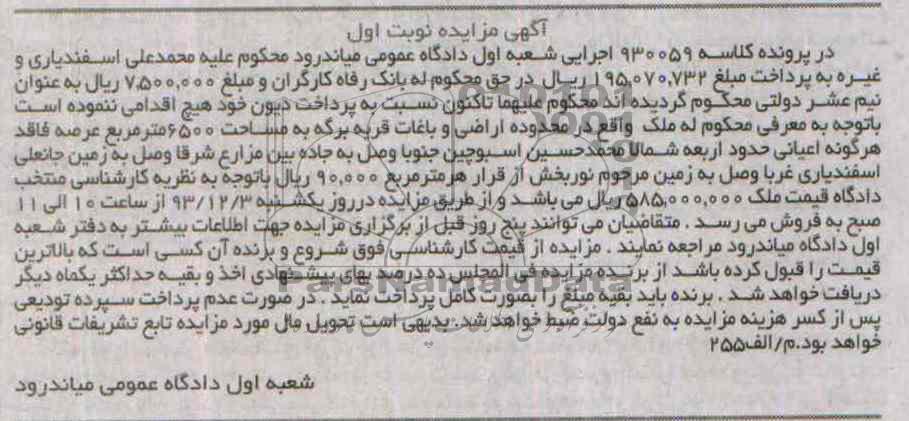 آگهی مزایده نوبت اول
در پرونده کلاسه ۹۳۰۰۵۹ اجرایی شعبه اول دادگاه عمومی میاندرود محکوم علیه محمدعلی اسفندیاری و
غیره به پرداخت مبلغ ۱۹۵,۰۷۰,۷۳۲ ریال در حق محکوم له بانک رفاه کارگران و مبلغ ۷,۵۰۰,۰۰۰ ریال به عنوان
نیم عشر دولتی محکوم گردیده اند محکوم علیهما تاکنون نسبت به پرداخت دیون خود هیچ اقدامی ننموده است
باتوجه به معرفی محکوم له ملک واقع در محدوده اراضی و باغات قریه برگه به مساحت ۶۵۰۰مترمربع عرصه فاقد
هرگونه اعیانی حدود اربعه شمالا محمدحسین اسبوچین جنوبا وصل به جاده بین مزارع شرقا وصل به زمین جانعلی
اسفندیاری غربا وصل به زمین مرحوم نوربخش از قرار هرمترمربع ۹۰,۰۰۰ ریال باتوجه به نظریه کارشناسی منتخب
دادگاه قیمت ملک ۵۸۵,۰۰۰,۰۰۰ریال می باشد و از طریق مزایده درروز یکشنبه ۹۳/۱۲/۳ از ساعت ۱۰ الی ۱۱
صبح به فروش می رسد . متقاضیان می توانند پنج روز قبل از برگزاری مزایده جهت اطلاعات بیشتر به دفتر شعبه
اول دادگاه میاندرود مراجعه نمایند . مزایده از قیمت کارشناسی فوق شروع و برنده آن کسی است که بالاترین
قیمت را قبول کرده باشد از برنده مزایده فی المجلس ده درصد بهای پیشنهادی اخذ و بقیه حداکثر یکماه دیگر
دریافت خواهد شد . برنده باید بقیه مبلغ را بصورت کامل پرداخت نماید . در صورت عدم پرداخت سپرده تودیعی
پس از کسر هزینه مزایده به نفع دولت ضبط خواهد شد. بدیهی است تحویل مال مورد مزایده تابع تشریفات قانونی
خواهد بود.م/الف۲۵۵
شعبه اول دادگاه عمومی میاندرود
ParsNamadData